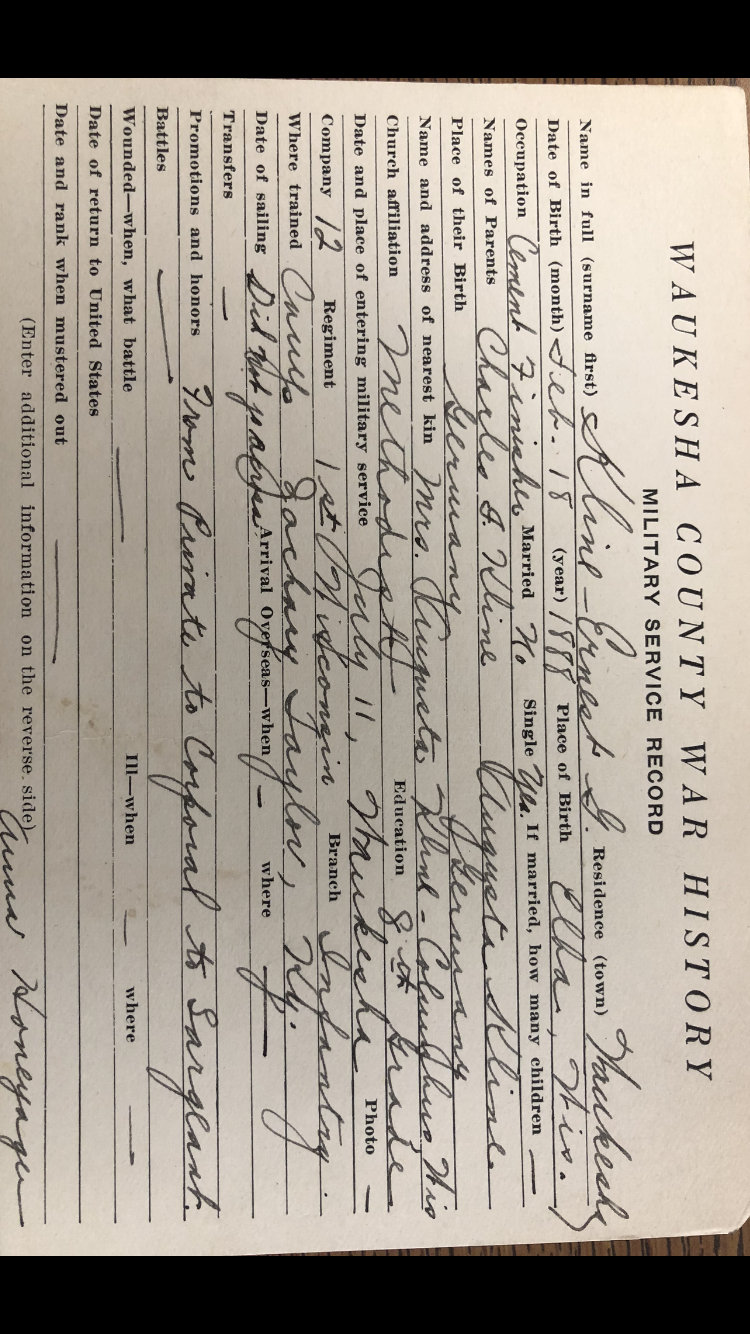 WAUKESHA COUNTY WAR HISTORY
MILITARY SERVICE RECORD
Name in full (surname first) Kline - Ernest G. Residence (town) Waukesha
Date of Birth (month) Feb. 18 (year) 1888 Place of Birth Elba, Wis.
Occupation Cement Finisher Married No Single Yes. If married, how many children —
Names of Parents Charles Kline Augusta Kline.
Place of their Birth Germany Germany
Name and address of nearest kin Mrs. Augusta Kline - Columbus, Wis
Church affiliation Methodist Education 8th Grade
Date and place of entering military service July 11, Waukesha Photo —
Company 12 Regiment 1st Wisconsin Branch Infantry.
Where trained Camp Zachary Taylor, Ky.
Date of sailing Did Not Arrival Overseas—when — where —
Transfers —
Promotions and honors From Private to Corporal to Sargeant.
Battles —
Wounded—when, what battle — Ill—when — where —
Date of return to United States
Date and rank when mustered out —
(Enter additional information on the reverse side)
Anna Honeyager